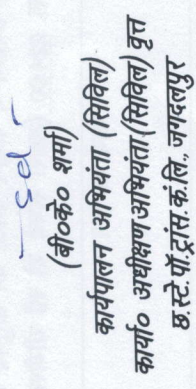 —sd—
(बी०के० शर्मा)
कार्यपालन अभियंता (सिविल)
कार्या० अधीक्षण अभियंता (सिविल) वृत्त
छ.स्टे.पॉ.ट्रांस.कं.लि., जगदलपुर